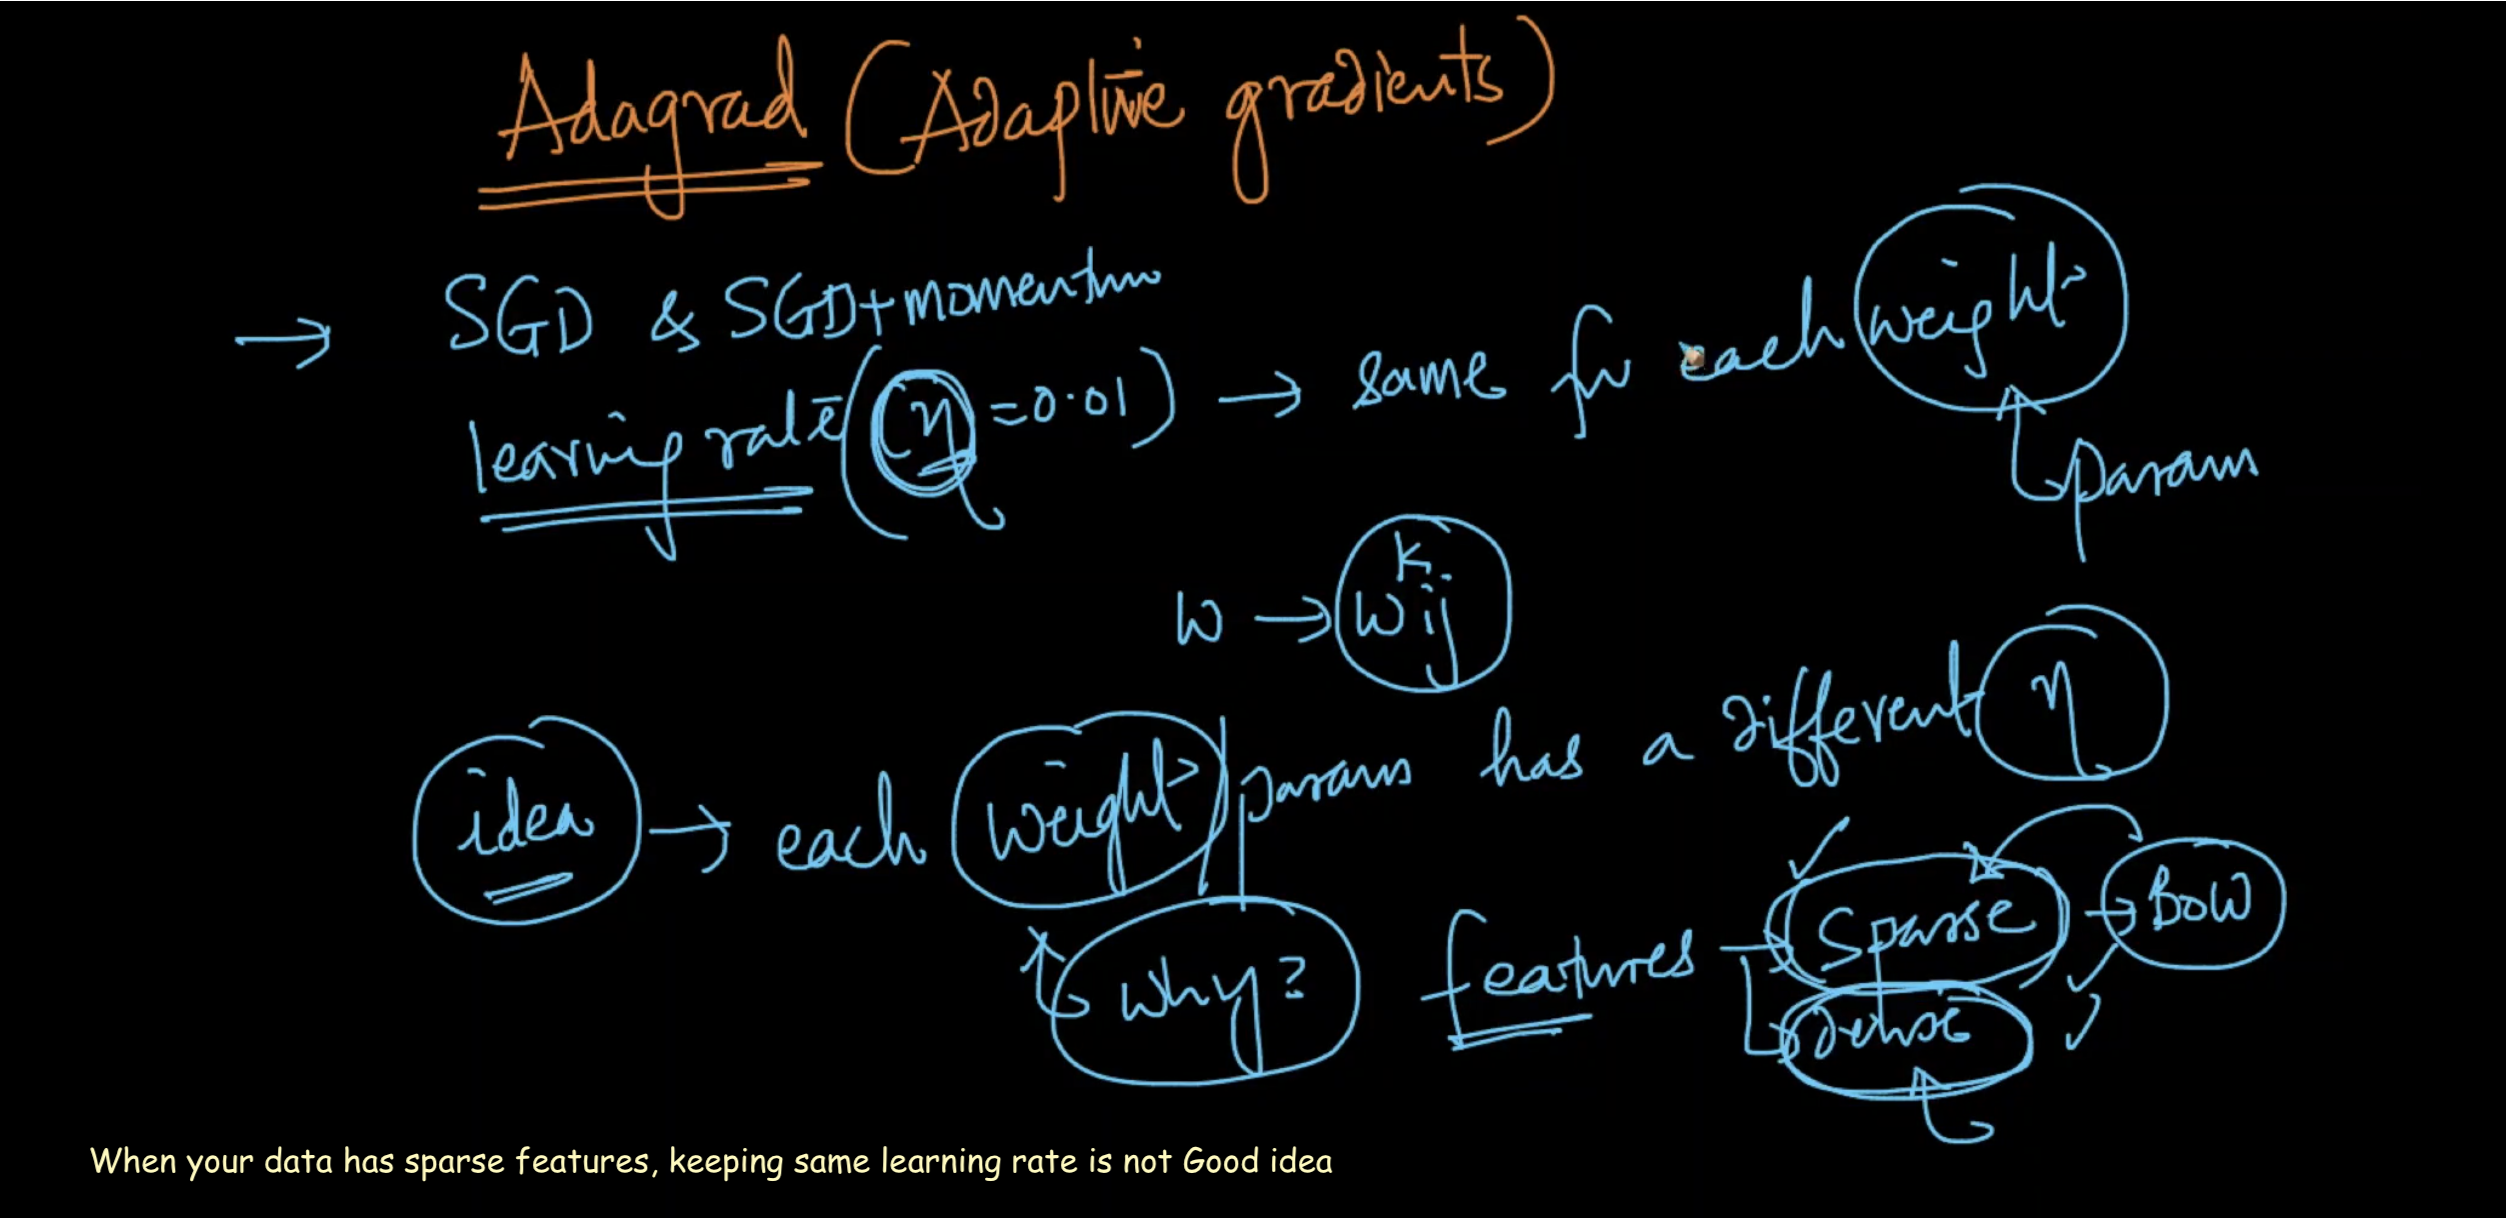 Adagrad (Adaptive gradients)
→ SGD & SGD+momentum
learning rate (η = 0.01) → same for each weight
params
w → w k ij
idea → each weight / params has a different η
why? features → Sparse → BOW
dense
When your data has sparse features, keeping same learning rate is not Good idea